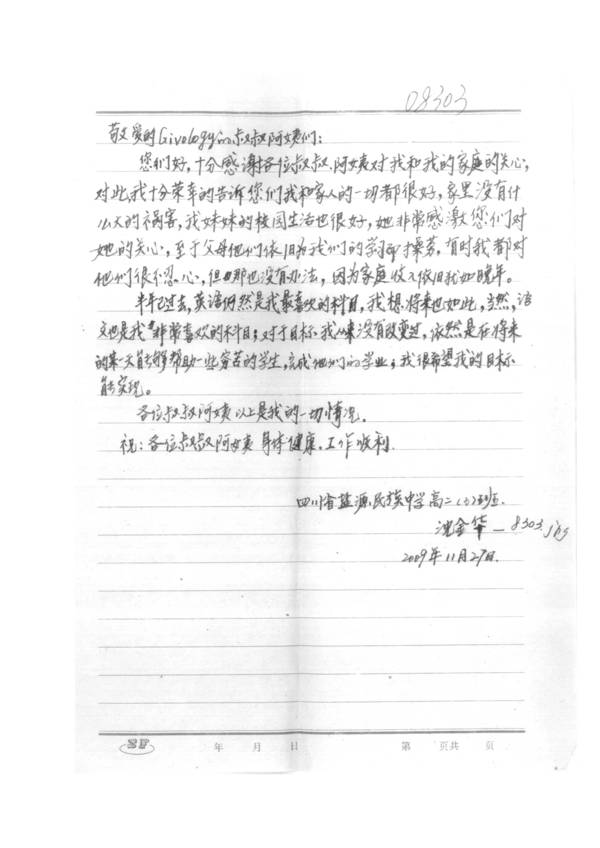 08303
敬爱的Givology的叔叔阿姨们：
您们好，十分感谢各位叔叔、阿姨对我和我的家庭的关心，
对此我十分荣幸的告诉您们我和家人的一切都很好，家里没有什
么大的祸害，我妹妹的校园生活也很好，她非常感激您们对
她的关心，至于父母他们依旧为我们的学习而操劳，有时我都对
他们很不忍心，但那也没有办法，因为家庭收入依旧我如晚年。
半年已过去，英语仍然是我最喜欢的科目，我想将来也如此，当然，语
文也是我非常喜欢的科目；对于目标我从来没有改变过，依然是在将来
的某一天能够帮助一些穷苦的学生，完成他们的学业；我很希望我的目标
能实现。
各位叔叔阿姨以上是我的一切情况。
祝：各位叔叔阿姨身体健康，工作顺利.
四川省盐源民族中学高二（3）班.
沈金华 — 8303
2009年11月27日.
SF
年 月 日
第 页共 页